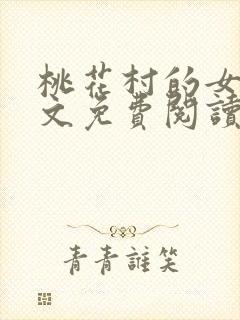 桃花村的女
文免費閱讀
青青誰笑